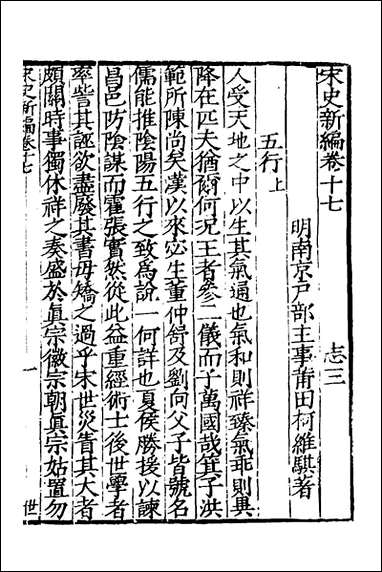 宋史新編卷十七 志三
明南京戶部主事莆田柯維騏著
五行上
人受天地之中以生其氣通也氣和則祥臻氣乖則異
降在匹夫猶爾何況王者參二儀而子萬國哉箕子洪
範所陳尚矣漢以來宓生董仲舒及劉向父子皆號名
儒能推陰陽五行之致為說一何詳也夏侯勝援以諫
昌邑防陰謀而霍張實然從此益重經術士後世學者
率訾其誣欲盡廢其書毋矯之過乎宋世災眚其大者
頗關時事獨休祥之奏盛於眞宗徽宗朝眞宗姑置勿
宋史新編卷十七 一 世